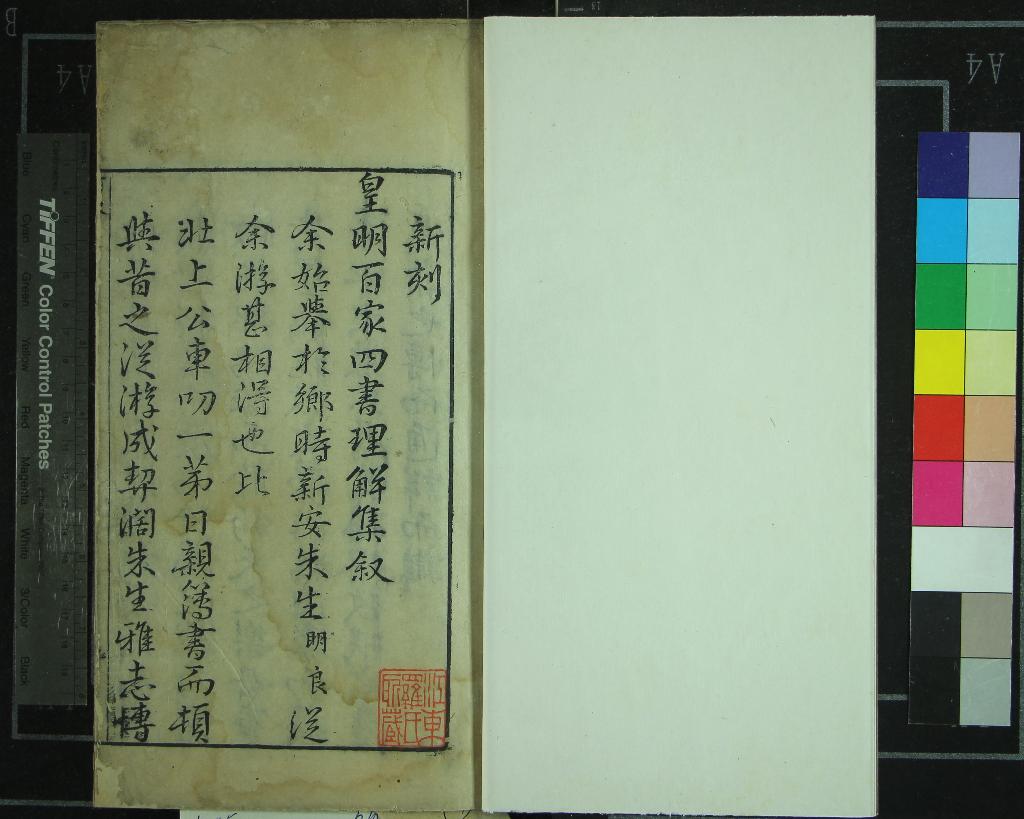 新刻
皇明百家四書理解集叙
余始舉於鄉時新安朱生明良從
余游甚相得也比
壯上公車叨一第日親簿書而頓
與昔之從游成契濶朱生雅志博
江東
羅氏
所藏
TIFFEN Color Control Patches
Blue
Cyan
Green
Yellow
Red
Magenta
White
3/Color
Black
A4
A4
B